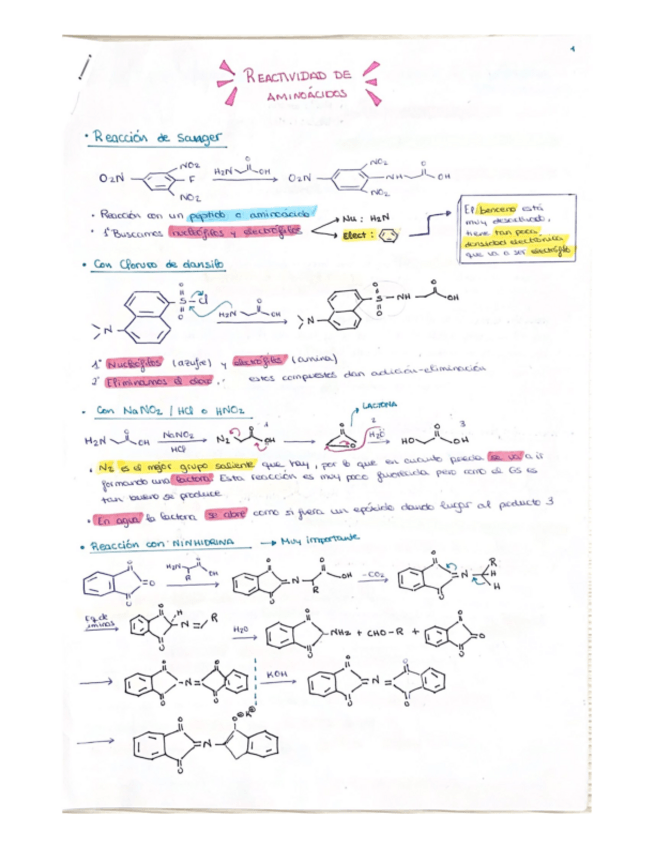 1
REACTIVIDAD DE
AMINOÁCIDOS
• Reacción de Sanger
O2N NO2 F NO2 H2N O OH O2N NO2 NH O OH NO2
• Reacción con un péptido o aminoácido
• 1º Buscamos nucleófilos y electrófilos
Nu : H2N
Elect :
El benceno está
muy desactivado,
tiene tan poca
densidad electrónica
que va a ser electrófilo
• Con Cloruro de dansilo
O S Cl O N H2N O OH O S NH O OH O N
1º Nucleófilos (azufre) y electrófilos (amina)
2º Eliminamos el cloro, estos compuestos dan adición-eliminación
• Con NaNO2 / HCl o HNO2
LACTONA
H2N O OH NaNO2 HCl N2 O OH 1 O O 2 H2O HO O OH 3
• N2 es el mejor grupo saliente que hay, por lo que en cuanto pueda se va a ir
formando una lactona. Esta reacción es muy poco favorecida pero como el GS es
tan bueno se produce
• En agua la lactona se abre como si fuera un epóxido dando lugar al producto 3
• Reacción con NINHIDRINA → Muy importante
O O O H2N O OH R O N O OH R O -CO2 O N R H H O
Eq. de
iminas
O H N R O H2O O NH2 + CHO-R + O O O
O N O O O KOH O N O O O
O N O O K